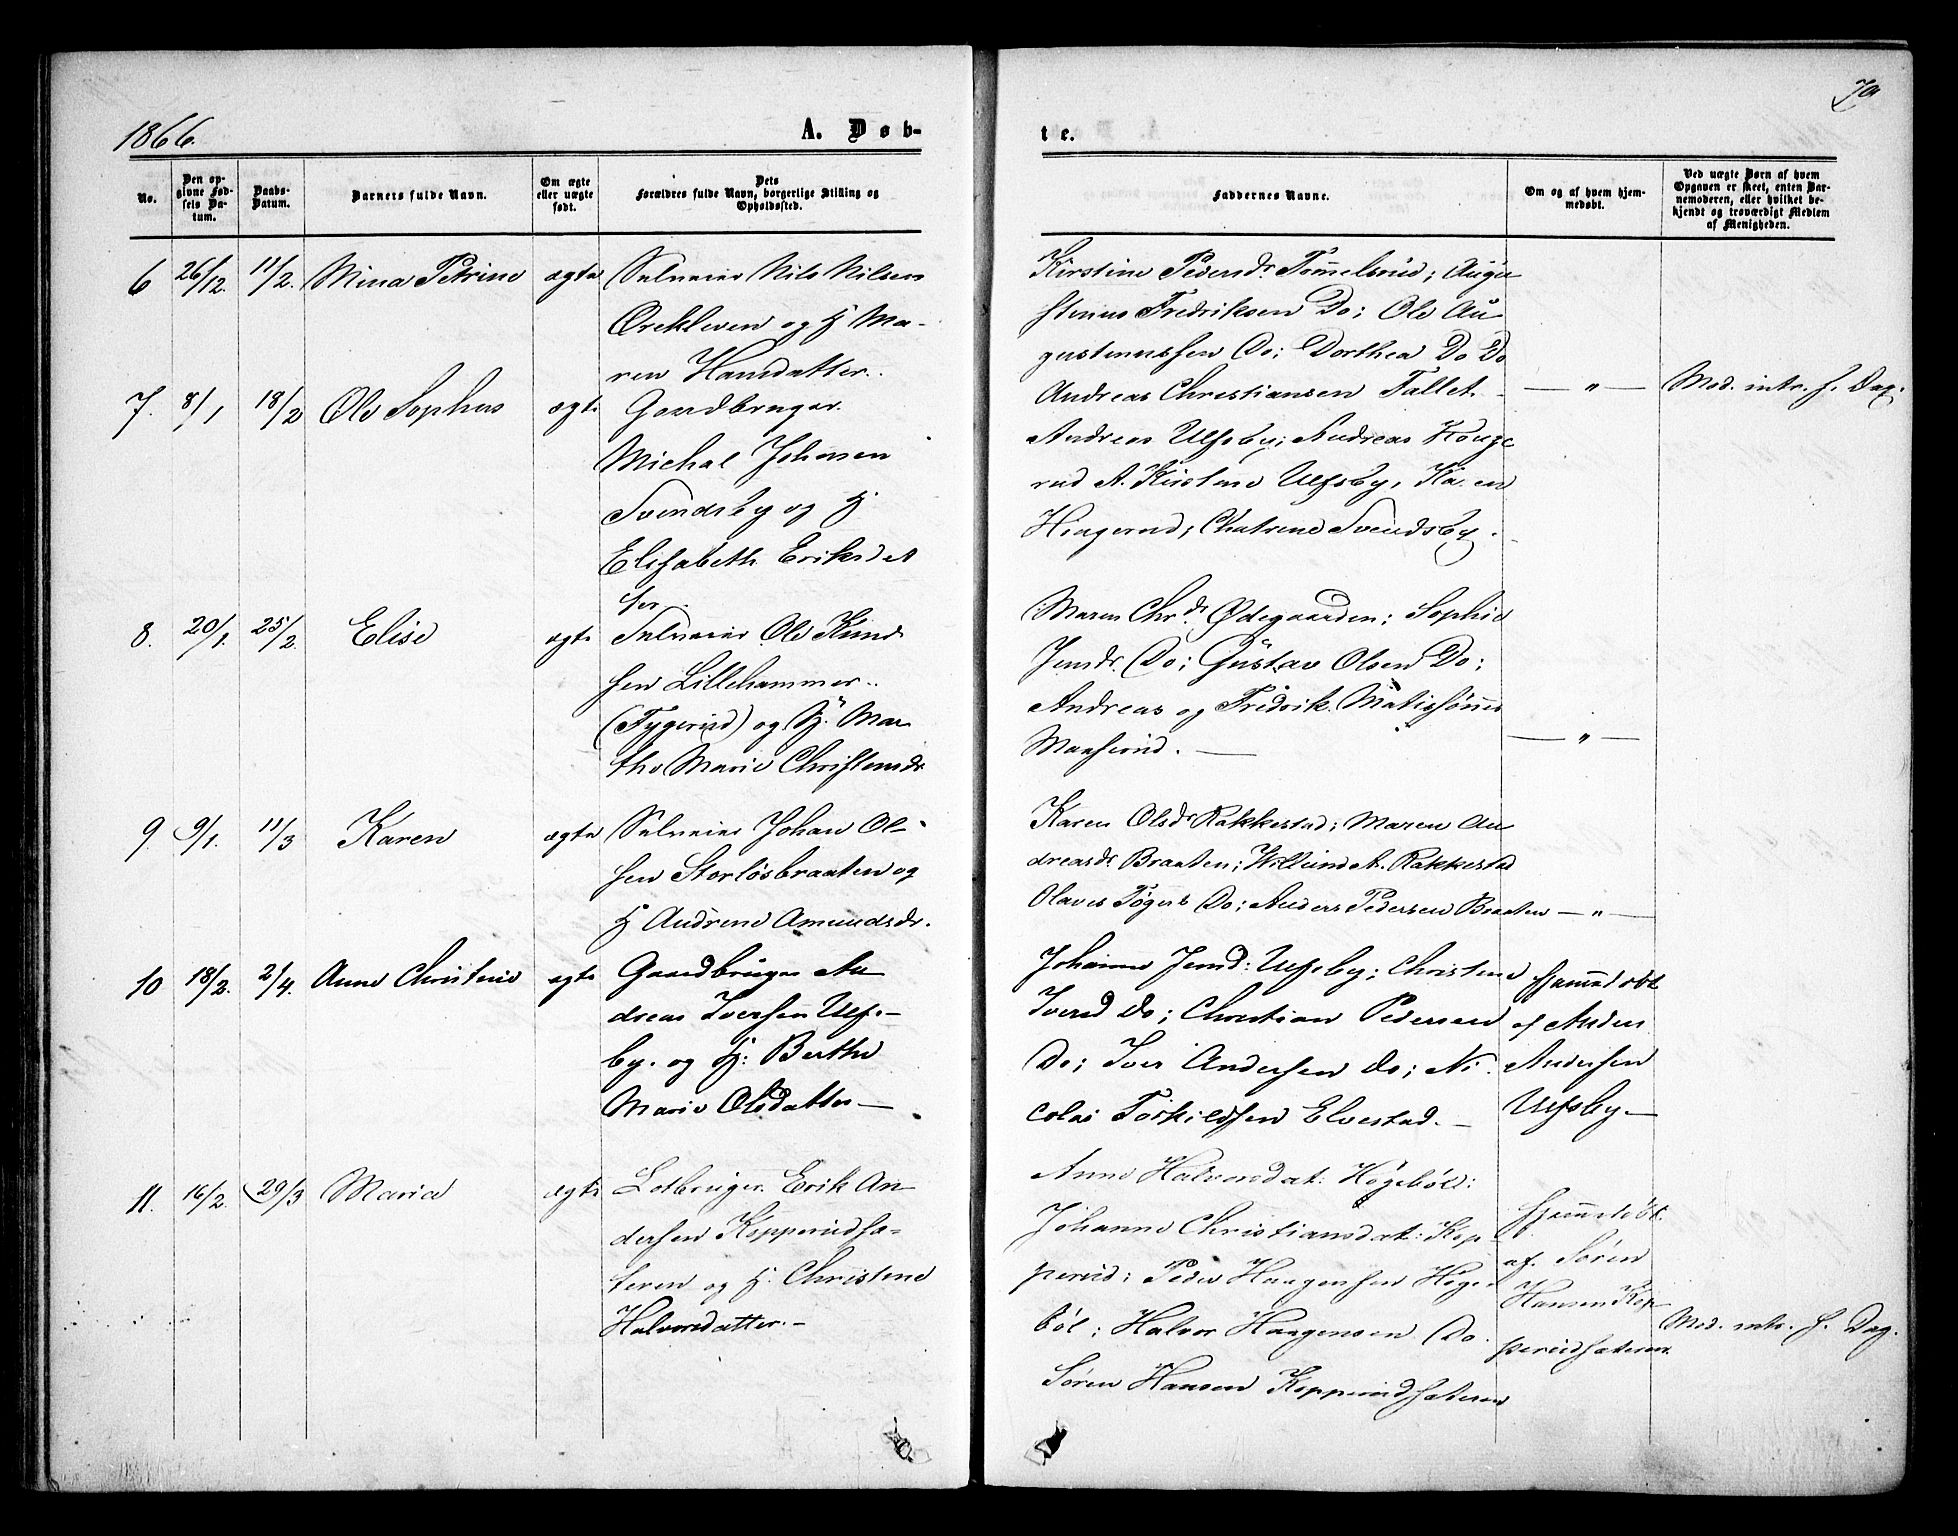 1866.
A. Døb-
te.
No.
Den op-
givne Fød-
sels Da-
tum.
Daabs-
Datum.
Barnets fulde Navn.
Om ægte
eller uægte
født.
Dets
Forældres fulde Navn, borgerlige Stilling og
Opholdssted.
Faddernes Navne.
Om og af hvem hjem-
medøbt.
Ved uægte Børn af hvem
Opgaven er skeet, enten Bar-
nemoderen, eller hvilket be-
kjendt og troværdigt Medlem
af Menigheden.
6 26/12. 11/2. Mina Petrine ægte Selveier Nils Nilsen
Orekleven og H Ma-
ren Hansdatter.
Kirstine Pedersdr. Tommelsrud; Augu
stinus Fredriksen Do; Ole Au
gustinussen Do; Dorthea Do Do
Andreas Christiansen Fallet. — " — Mod. intr. s. Dag.
7. 8/1 18/2 Ole Sophus ægte Gaardbruger
Michal Johnsen
Svendsby og H
Elisabeth Eriksdat
ter.
Andreas Ulfsby; Andreas
rud A. Kirstine Ulfsby, Karen
Svendsby.
8. 20/1. 25/2. Elise ægte Selveier Ole Knud
sen Lillehammer..
(Tygerud) og H. Mar
the Marie Christensdr
Maren Chr.dr. Ødegaarden; Sophie
Jensdr. Do; Gustav Olsen Do;
Andreas og Fredrik
— " —
9. 9/1. 11/3 Karen ægte Selveier Johan Ol-
sen Storløsbraaten og
H Andrine Amundsdr.
Karen Olsdr Rakkestad; Maren An
dreasdr. Braaten; A. Rakkestad
Do; Anders Pedersen Braaten — " —
10 18/2. 2/4. Anne Christine ægte Gaardbruger An
dreas Iversen Ulfs-
by. og H: Berthe
Marie Olsdatter —
Johanne Jensd: Ulfsby; Christine
Iversd Do; Christian Pedersen
Do; Iver Andersen do; Ni-
colai Torkildsen Elvestad. —
Hjemmedøbt
af Anders
Andersen
Ulfsby —
11. 16/2. 29/3 Maria ægte Lotbruger Erik An
dersen Kopperudsæ-
teren og H. Christine
Halvorsdatter. —
Anne Halvorsdat: Høgebøl:
Johanne Christiansdat: Kop-
perud; Peder Haagensen Høge
bøl; Halvor Haagensen Do.
Søren Hansen Kopperudsæteren
Hjemmedøbt.
af. Søren
Hansen Kop
perudsæteren.
Mod. intr. s. Dag.